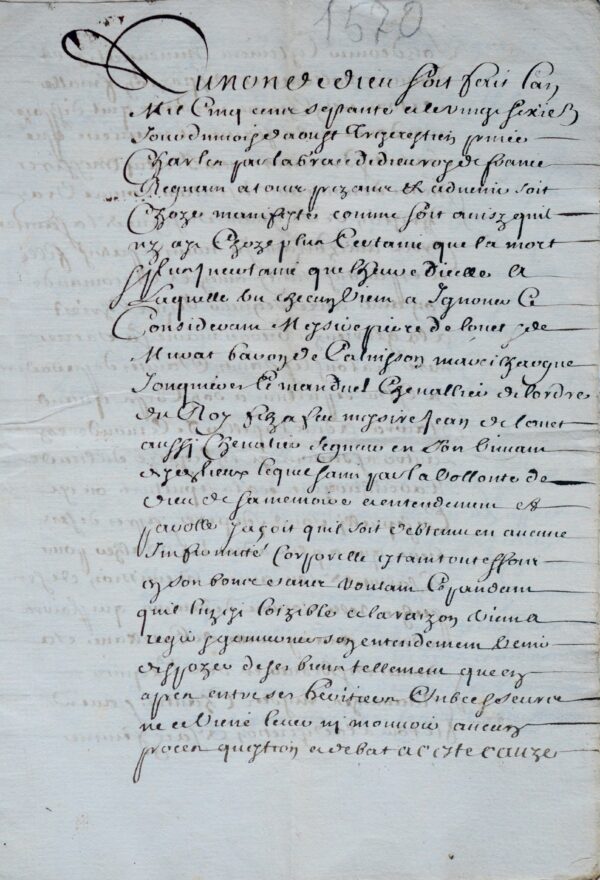 1570
Au nom de dieu soit faict l'an
Mil Cinq cens septante et le vingt sixie
Jour du mois d'aoust tres chrestien prince
Charles par la grace de dieu roy de france
Regnant a tous presans et advenir soit
Choze manifeste comme soit ainsy quil
ny aye Choze plus Certaine que la mort
ny plus incertaine que lheure dicelle
laquelle Considerant
Messire pierre de louet de
Murat baron de Calvisson
Manduel Chevallier de lordre
du Roy filz a feu messire Jean de louet
aussi Chevalier segneur en son vivant
desdits lieux lequel sain par la vollonte de
dieu de sa memoire et entendement et
parolle Jacoit quil soit detenu en aucune
Infirmité Corporelle estant toutesfois
en son bon sens voulant Cependant
quil luy est loizible et la raizon
son entendement
dispozer de ses biens tellement que
apres entre ses heritiers
ne advienne ny mouvoir aucung
proces question et debat a ceste cauze